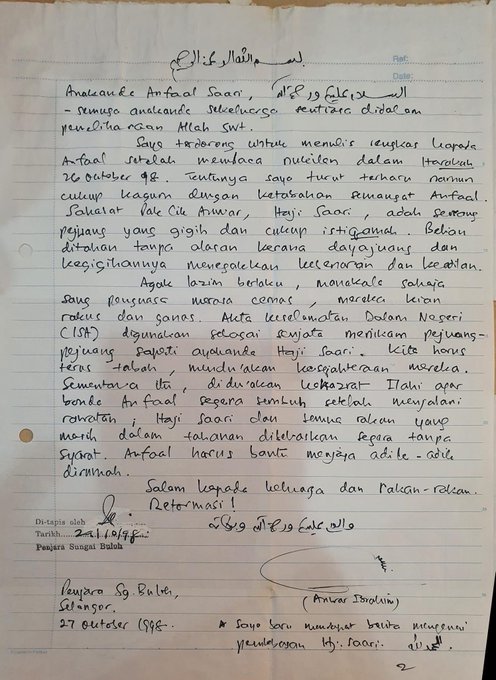 بسم الله الرحمن الرحيم
Ref:
Date:
Anakanda Anfaal Saari, السلام عليكم ورحمة الله
- semuga anakanda sekeluarga sentiasa didalam
pemeliharaan Allah swt.
Saya terdorong untuk menulis ringkas kepada
Anfaal setelah membaca nukilan dalam Harakah
26 Oktober 98. Tentunya saya turut terharu namun
cukup kagum dengan ketabahan semangat Anfaal.
Sahabat Pak Cik Anwar, Haji Saari, adalah seorang
pejuang yang gigih dan cukup istiqamah. Beliau
ditahan tanpa alasan kerana daya juang dan
kegigihannya menegakkan kebenaran dan keadilan.
Agak lazim berlaku, manakala sahaja
sang penguasa merasa cemas, mereka kian
rakus dan ganas. Akta Keselamatan Dalam Negeri
(ISA) digunakan sebagai senjata menikam pejuang-
pejuang seperti ayahanda Haji Saari. Kita harus
terus tabah, mendu'akan kesejahteraan mereka.
Sementara itu, didu'akan kehazrat Ilahi agar
bonda Anfaal segera sembuh setelah menjalani
rawatan; Haji Saari dan semua rakan yang
masih dalam tahanan dibebaskan segera tanpa
syarat. Anfaal harus bantu menjaga adik-adik
dirumah.
Salam kepada keluarga dan rakan-rakan.
Reformasi!
والسلام عليكم ورحمة الله وبركاته
Di-tapis oleh
Tarikh 27/10/98
Penjara Sungai Buloh
Penjara Sg. Buloh,
Selangor.
27 Oktober 1998.
(Anwar Ibrahim)
* Saya baru mendapat berita mengenai
pembebasan Hj. Saari. الحمد لله
2